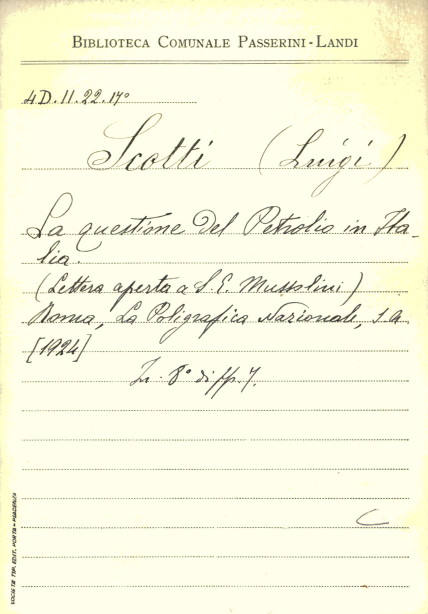 BIBLIOTECA COMUNALE PASSERINI-LANDI
4D.11.22.17°
Scotti (Luigi)
La questione del Petrolio in Ita-
lia.
(Lettera aperta a S. E. Mussolini)
Roma, La Poligrafica Nazionale, s a
[1924]
In 8° di pp. 7.
SOCIETÀ TIP. EDIT. PORTA - PIACENZA